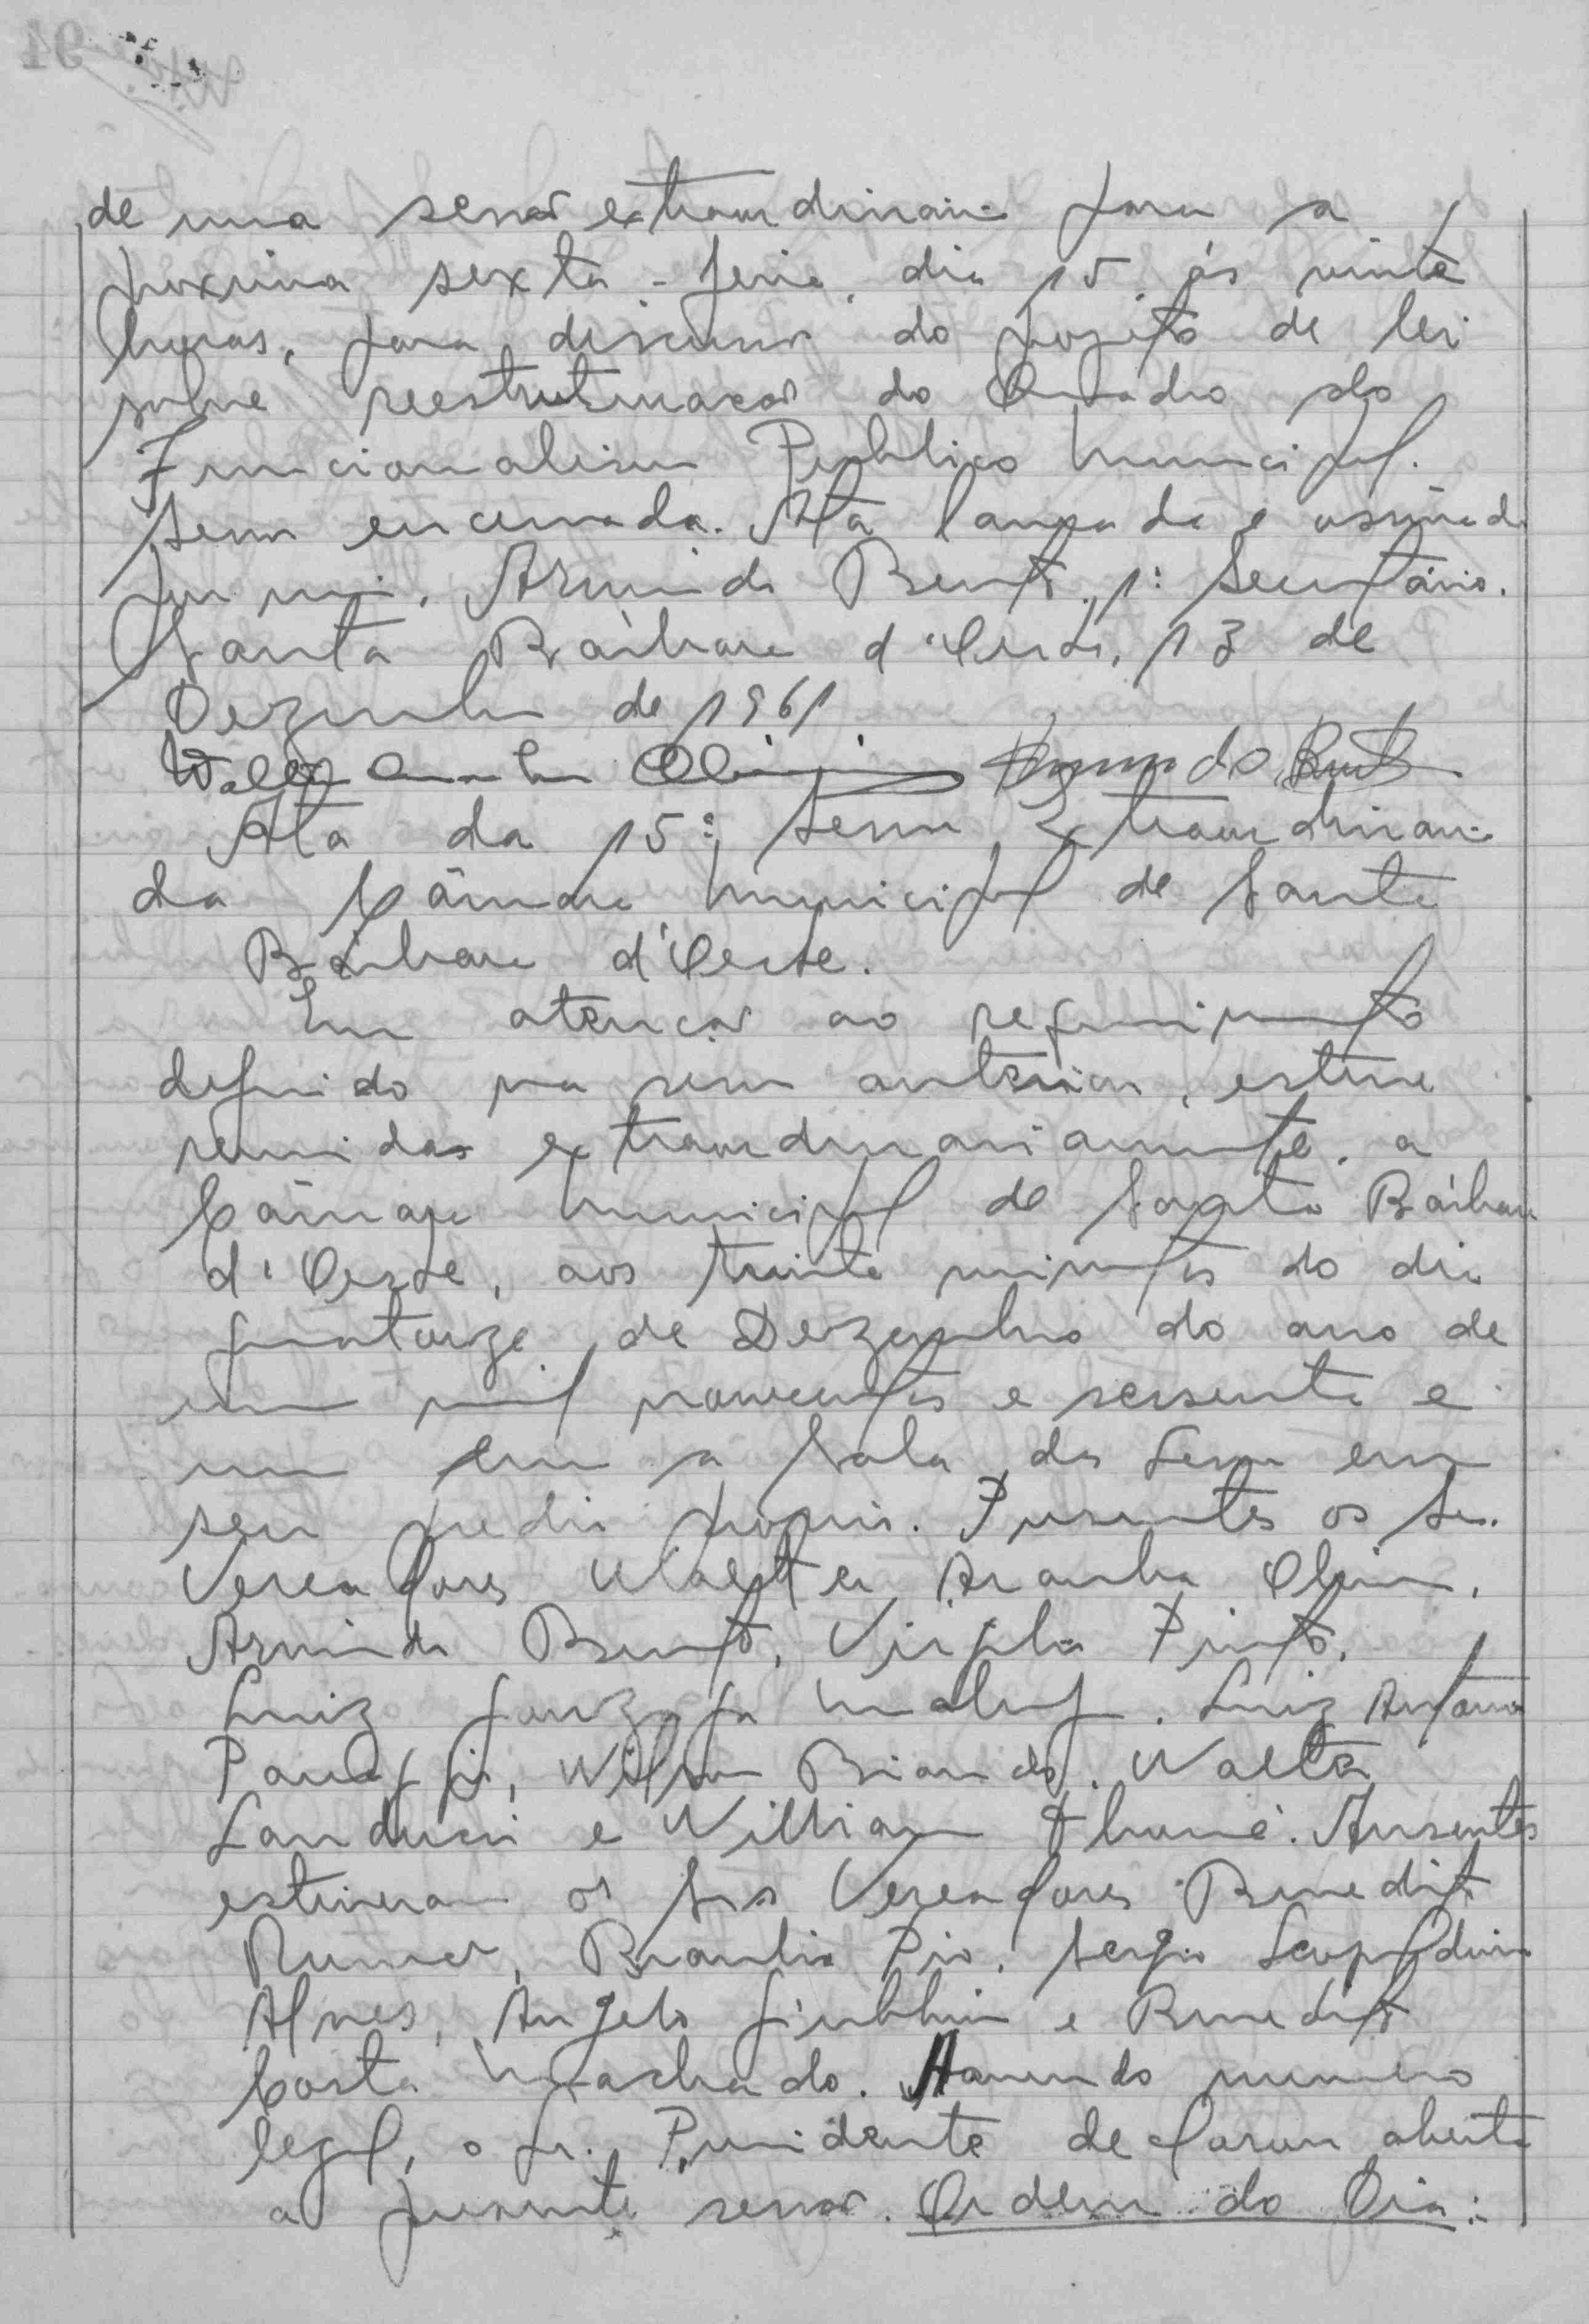 de uma sessão extraordinaria para a
proxima sexta-feira, dia 15, ás vinte
horas, para discussão do projeto de lei
sobre reestruturação do Quadro do
Funcionalismo Publico Municipal.
Sessão encerrada. Ata lançada e assinada
por mim, Armindo Bento, 1º Secretário.
Santa Bárbara d'Oeste, 13 de
Dezembro de 1961
Walter Aranha Olivier Armindo Bento
Ata da 15ª Sessão Extraordinaria
da Câmara Municipal de Santa
Bárbara d'Oeste.
Em atenção ao requerimento
deferido na sessão anterior, esteve
reunida extraordinariamente, a
Câmara Municipal de Santa Bárbara
d'Oeste, aos trinta minutos do dia
quatorze de Dezembro do ano de
um mil novecentos e sessenta e
um em a Sala das Sessões em
seu predio proprio. Presentes os Srs.
Vereadores Walter Aranha
Armindo Bento, Virgilio Pinto,
Luiz Gonzaga Maluf, Luiz Antonio
Wilson Walter
Landucci e William Thomé. Ausentes
estiveram os Srs Vereadores Benedito
Braulio Pio, Sergio Leopoldino
Alves, Angelo Giubbina e Benedito
Costa Machado. Havendo numero
legal, o Sr. Presidente declarou aberta
a presente sessão. Ordem do Dia: